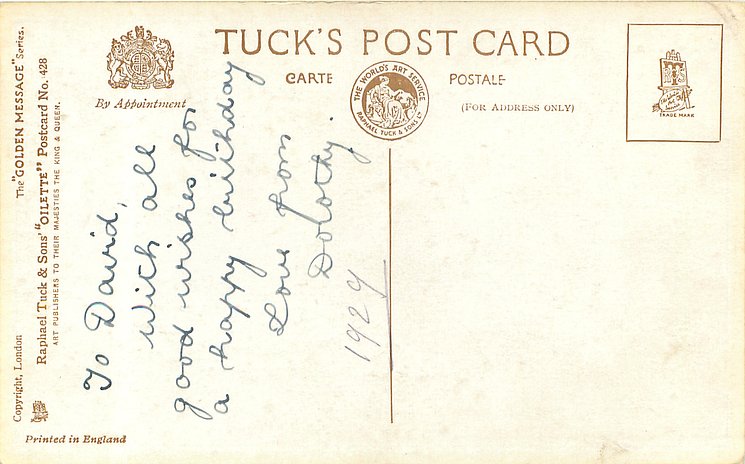 TUCK'S POST CARD
CARTE POSTALE
(FOR ADDRESS ONLY)
By Appointment
THE WORLD'S ART SERVICE
RAPHAEL TUCK & SONS LD
TRADE MARK
The "GOLDEN MESSAGE" Series.
Raphael Tuck & Sons' "OILETTE" Postcard No. 428
ART PUBLISHERS TO THEIR MAJESTIES THE KING & QUEEN.
Copyright, London
Printed in England
To David,
with all
good wishes for
a happy birthday
Love from
Dorothy.
1929